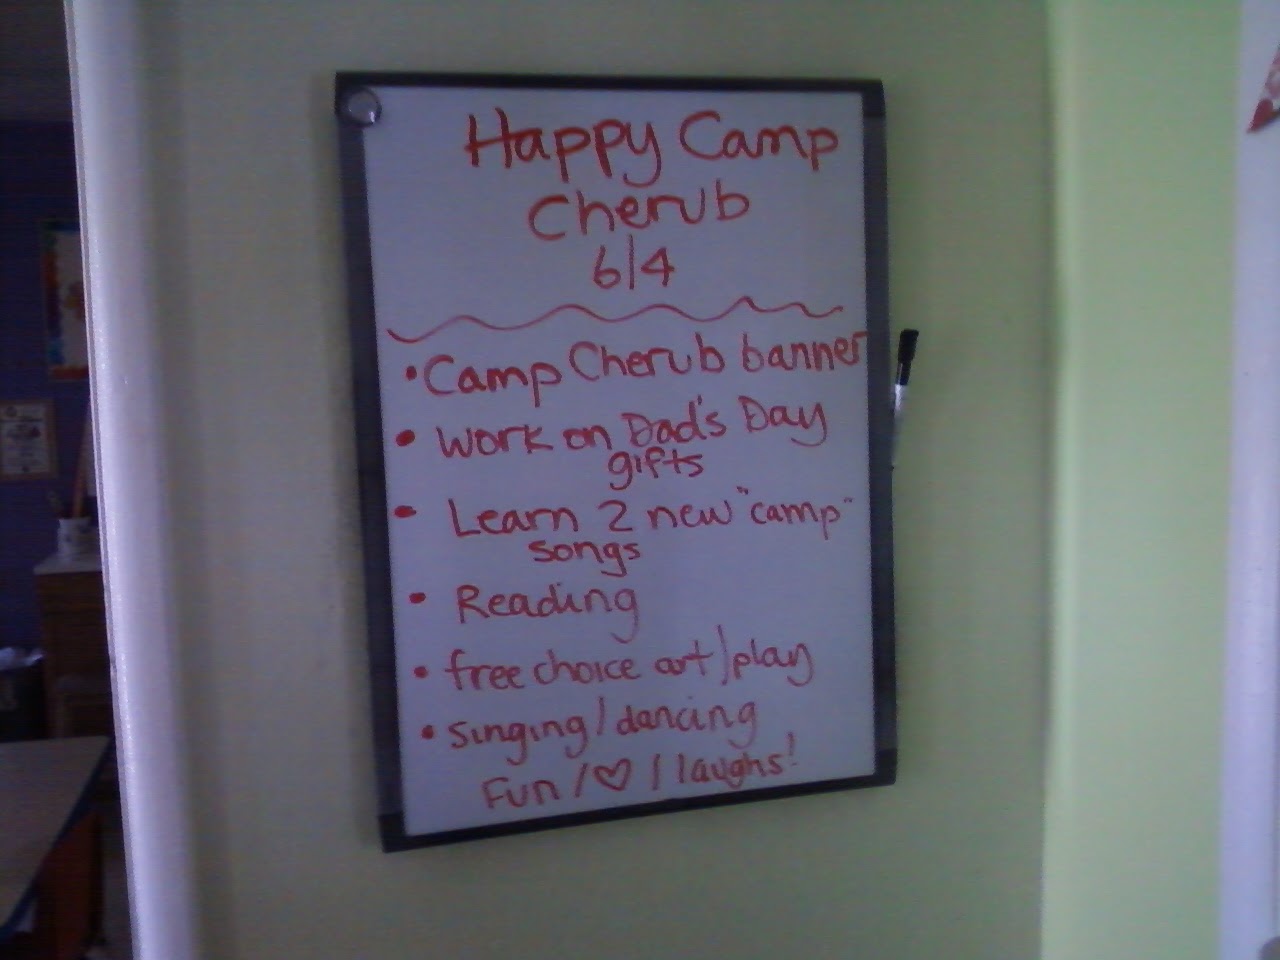 Happy Camp
Cherub
6/4
• Camp Cherub banner
• Work on Dad's Day
gifts
• Learn 2 new "camp"
songs
• Reading
• free choice art/play
• singing/dancing
Fun/♡/laughs!